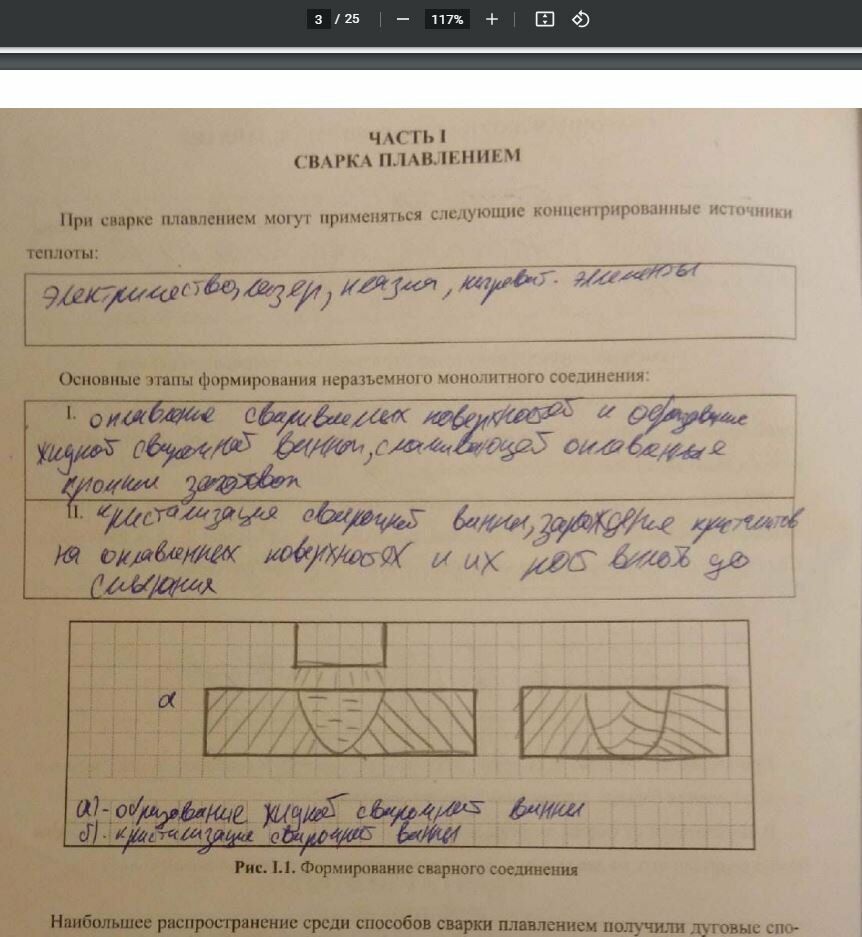 3 / 25 — 117% +
ЧАСТЬ I
СВАРКА ПЛАВЛЕНИЕМ
При сварке плавлением могут применяться следующие концентрированные источники
теплоты:
Электричество, лазер, плазма, нагреват. элементы
Основные этапы формирования неразъемного монолитного соединения:
I. оплавление свариваемых поверхностей и образование
жидкой сварочной ванны, смачивающей оплавенные
кромки заготовок
II. кристализация сварочной ванны, зарождение кристалитов
на оплавленных поверхностях и их рост вплоть до
смыкания
а
а) - образование жидкой сварочной ванны
б) - кристализация сварочной ванны
Рис. I.1. Формирование сварного соединения
Наибольшее распространение среди способов сварки плавлением получили дуговые спо-